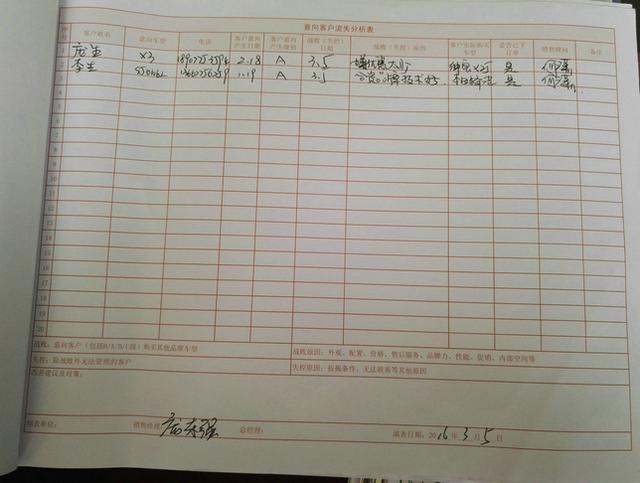 意向客户流失分析表
序号 客户姓名 意向车型 电话 客户意向产生日期 客户意向产生级别 战败(失控)日期 战败(失控)原因 客户实际购买车型 是否已下订单 销售顾问 备注
1 庞生 X3 2.18 A 3.5 嫌优惠太少 X25 是
2 李生 1.19 A 3.5 合资品牌技术好 是
3
4
5
6
7
8
9
10
11
12
13
14
15
16
17
18
19
20
战败:意向客户(包括H/A/B/C级)购买其他品牌车型 战败原因:外观、配置、价格、售后服务、品牌力、性能、促销、内部空间等
失控:除战败外无法管理的客户 失控原因:按揭条件、无法联系等其他原因
改善建议及对策:
填表单位: 销售经理: 总经理: 填表日期:2016年3月5日